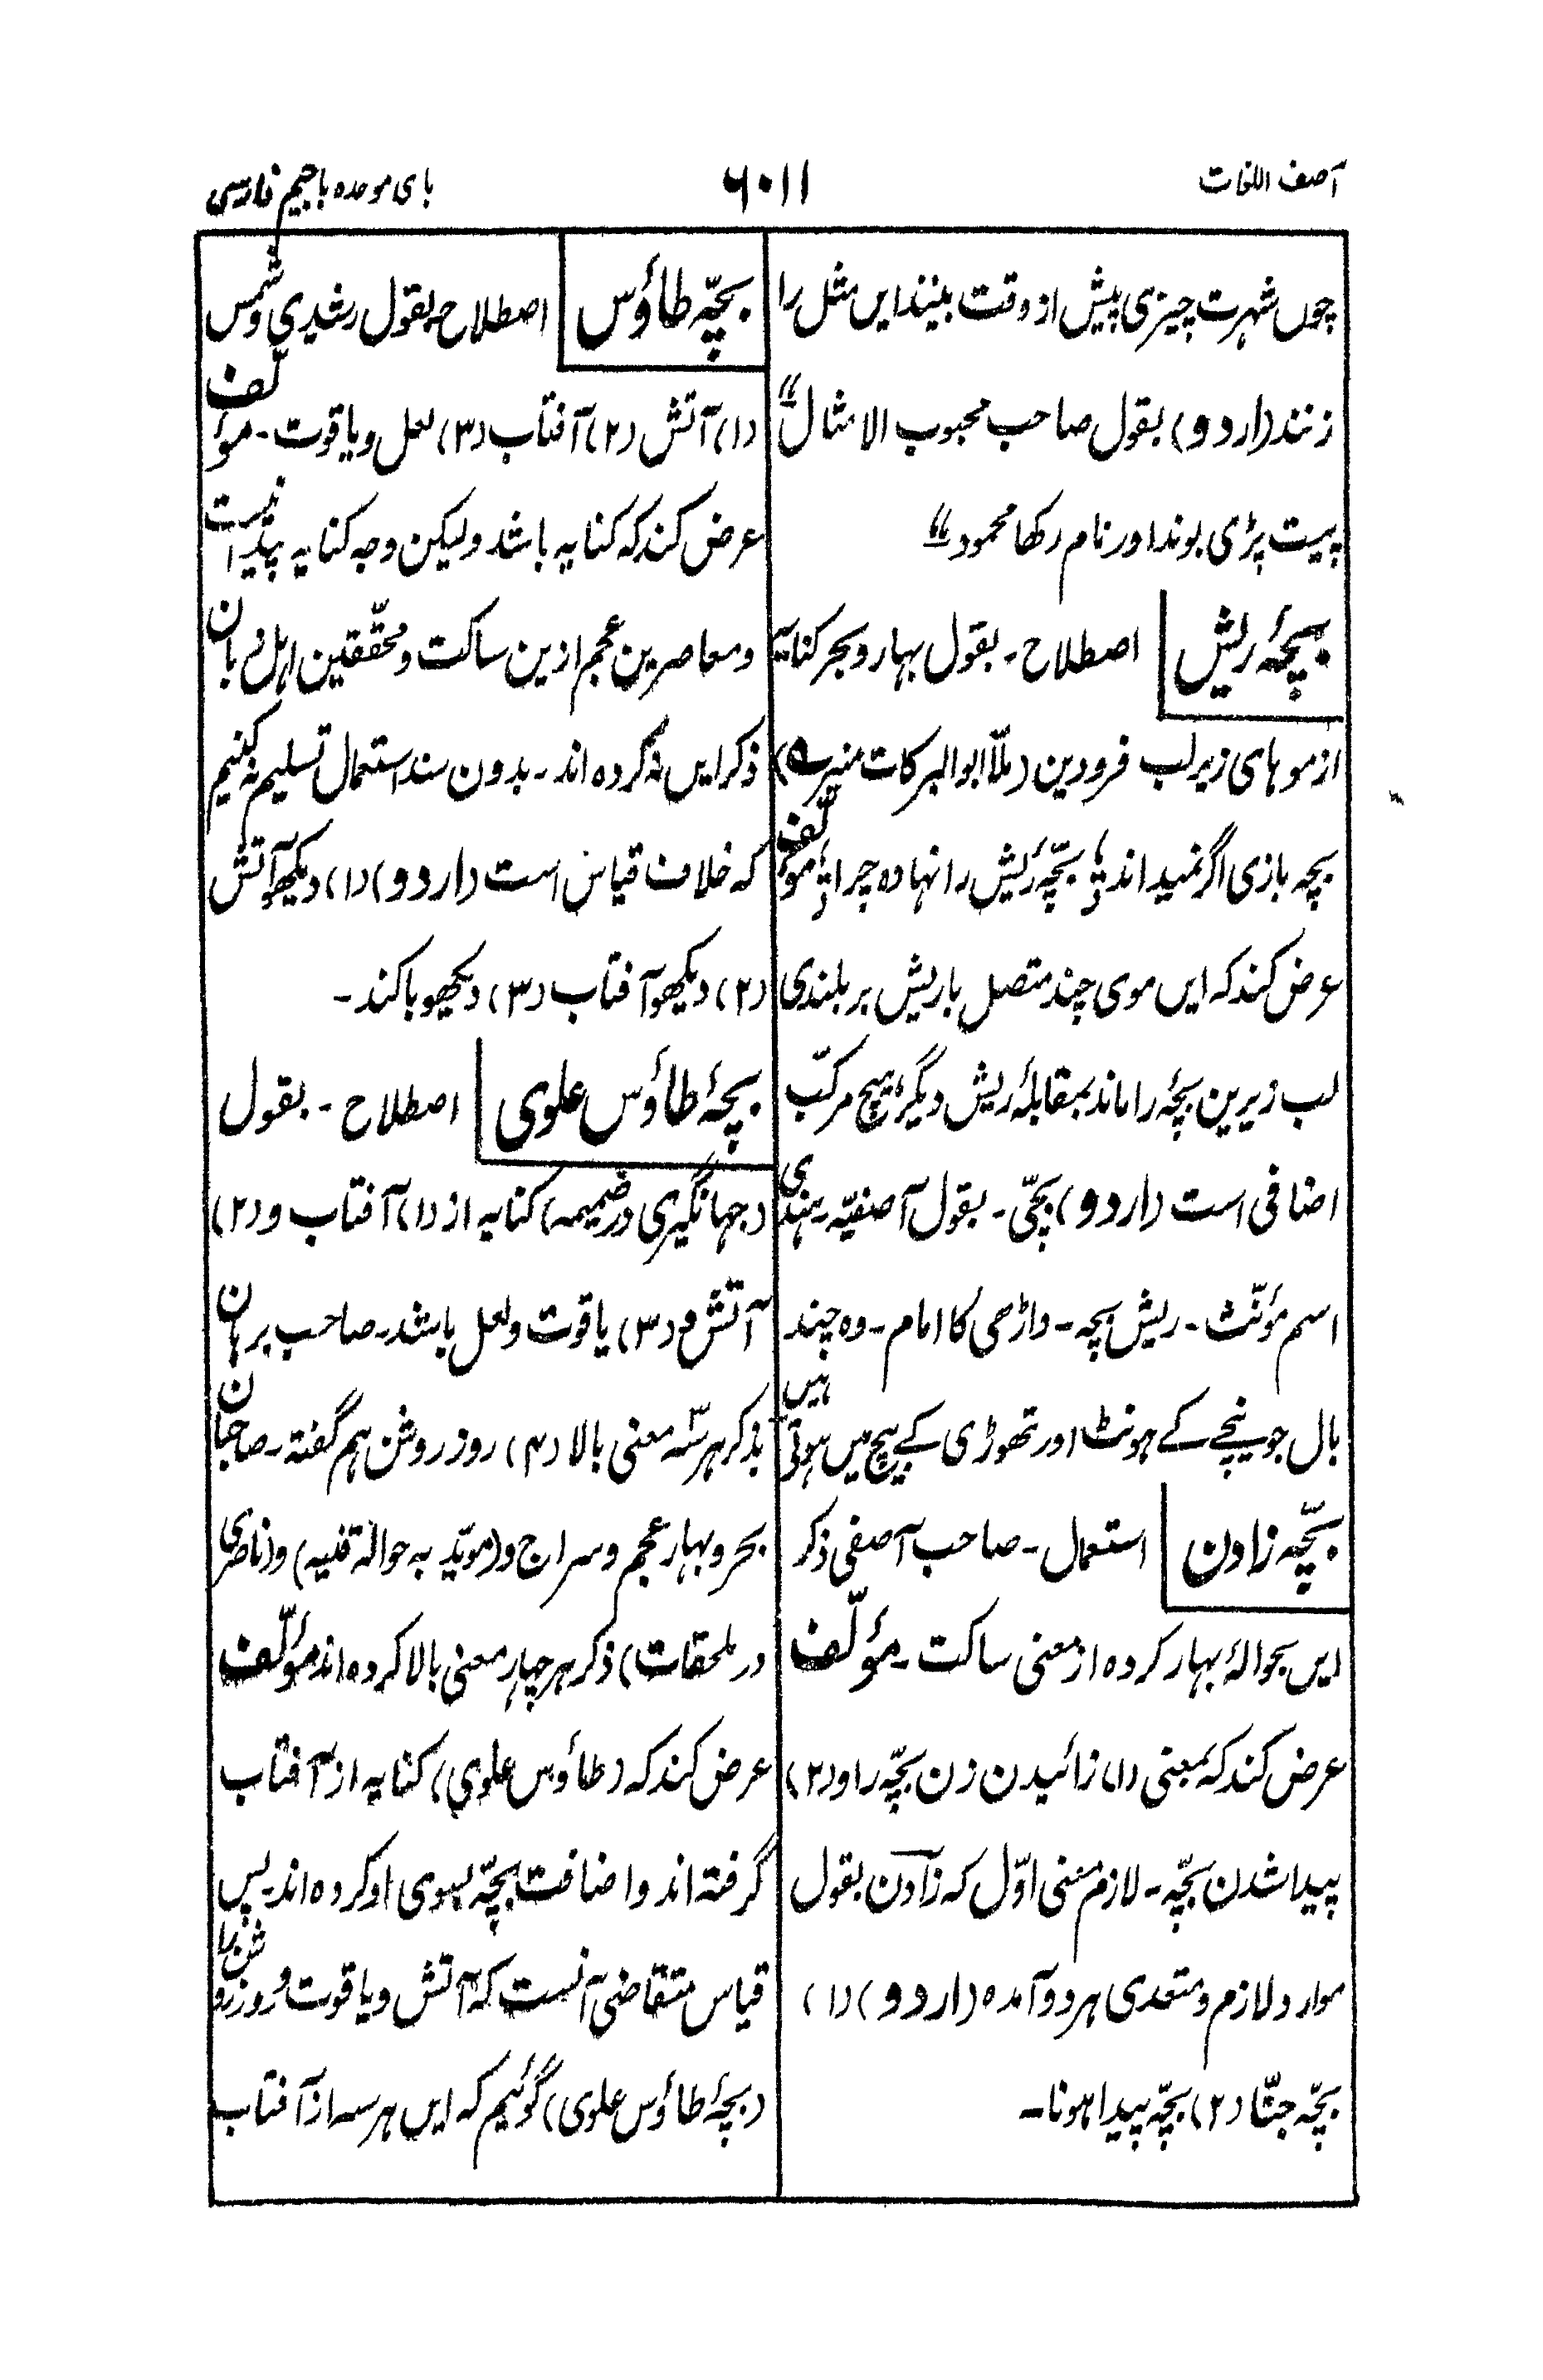 آصف اللغات
۶۰۱۱
بای موحده باجیم فارسی
چوں شہرت چیزی پیش از وقت بینند ایں مثل را
زنند (اردو) بقول صاحب محبوب الامثال ”
پیت پڑی بوند اور نام رکھا محمود “
بچۂ ریش اصطلاح ۔ بقول بہار و بحر کنایہ
از موہای زیر لب فرودین (ملّا ابو البرکات منیر ؎)
بچہ بازی اگر نمیداند ؛ بچّۂ ریش را نہاده چرا ؛ مؤلّف
عرض کند کہ ایں موی چند متصل باریش بر بلندی
لب زیرین بچۂ را ماند بمقابلۂ ریش دیگر ہیچ مرکّب
اضافی است (اردو) بچّی ۔ بقول آصفیّہ ہندی
اسم مؤنّث ۔ ریش بچہ ۔ داڑھی کا امام ۔ وہ چند
بال جو نیچے کے ہونٹ اور تھوڑی کے بیچ میں ہوتی ہیں
بچّہ زادن استعمال ۔ صاحب آصفی ذکر
ایں بحوالۂ بہار کردہ از معنی ساکت ۔ مؤلّف
عرض کند کہ بمعنی (۱) زائیدن زن بچّہ را و (۲)
پیدا شدن بچّہ ۔ لازم معنی اوّل کہ زادن بقول
موارد لازم و متعدی ہر دو آمدہ (اردو) (۱)
بچّہ جنّنا (۲) بچّہ پیدا ہونا ۔
بچّہ طاؤس اصطلاح بقول رشیدی و شمس
(۱) آتش (۲) آفتاب (۳) لعل و یاقوت ۔ مؤلّف
عرض کند کہ کنایہ باشد ولیکن وجہ کنایہ پیدا نیست
و معاصرین عجم ازین ساکت و محقّقین اہل زبان
ذکر ایں نہ کردہ اند ۔ بدون سند استعمال تسلیم نہ کنیم
کہ خلاف قیاس است (اردو) (۱) دیکھو آتش
(۲) دیکھو آفتاب (۳) دیکھو باکند ۔
بچۂ طاؤس علوی اصطلاح ۔ بقول
(جہانگیری در ضمیمہ) کنایہ از (۱) آفتاب و (۲)
آتش و (۳) یاقوت و لعل باشد ۔ صاحب برہان
بذکر ہر سہ معنی بالا (۴) روز روشن ہم گفتہ ۔ صاحبان
بحر و بہار عجم و سراج و (مویّد بہ حوالہ قنیہ) و (ناصری
در ملحقات) ذکر ہر چہار معنی بالا کردہ اند مؤلّف
عرض کند کہ (طاؤس علوی) کنایہ از آفتاب
گرفتہ اند و اضافت بچّہ بسوی او کردہ اند پس
قیاس متقاضی آنست کہ آتش و یاقوت و روز روشن را
(بچۂ طاؤس علوی) گوئیم کہ ایں ہر سہ از آفتاب